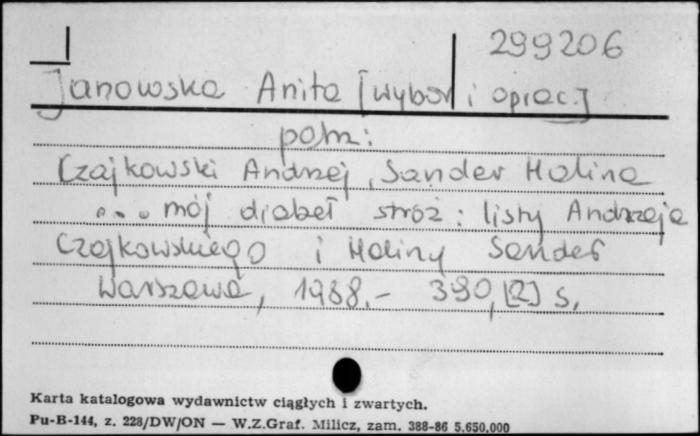 299206
Janowska Anita [wybór i oprac.]
patrz:
Czajkowski Andrzej, Sander Halina
... mój diabeł stróż: listy Andrzeja
Czajkowskiego i Haliny Sander
Warszawa, 1988.- 390,[2] s.
Karta katalogowa wydawnictw ciągłych i zwartych.
Pu-B-144, z. 228/DW/ON — W.Z.Graf. Milicz, zam. 388-86 5.650.000